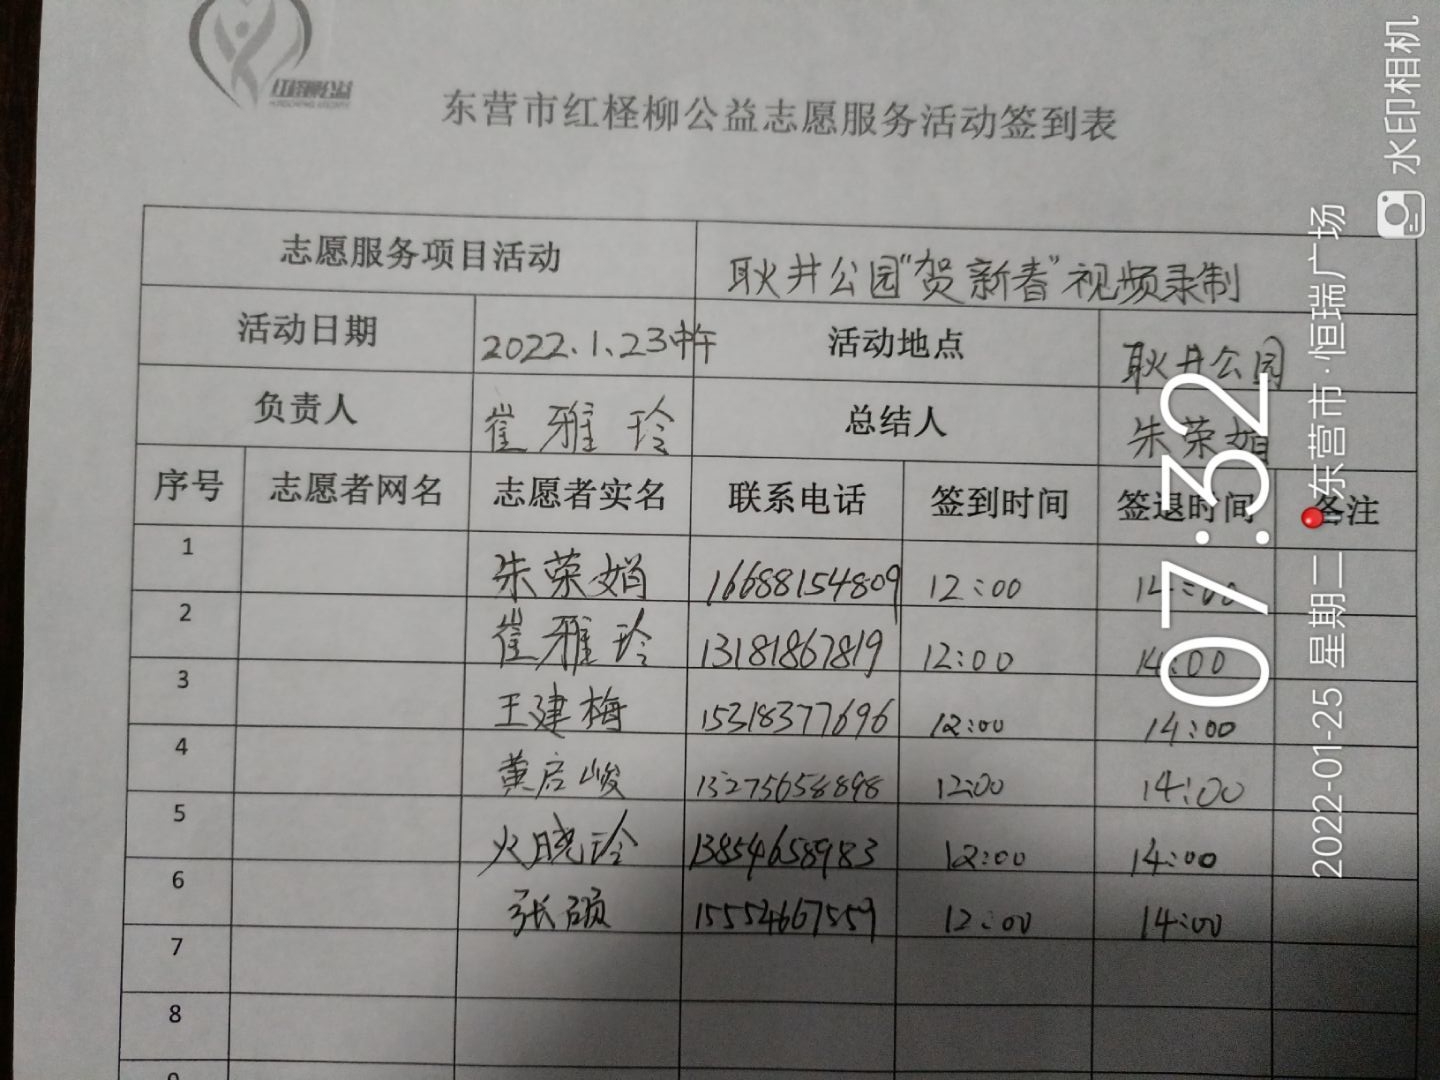 红柽柳公益
东营市红柽柳公益志愿服务活动签到表
志愿服务项目活动 耿井公园“贺新春”视频录制
活动日期 2022.1.23中午 活动地点 耿井公园
负责人 崔雅玲 总结人 朱荣娟
序号 志愿者网名 志愿者实名 联系电话 签到时间 签退时间 备注
1 朱荣娟 16688154809 12:00 14:00
2 崔雅玲 13181867819 12:00 14:00
3 王建梅 15318377696 12:00 14:00
4 黄启峻 13275658898 12:00 14:00
5 火晓玲 13854658983 12:00 14:00
6 张硕 15554667559 12:00 14:00
7
8
9
07:32
2022-01-25 星期二 东营市·恒瑞广场
水印相机